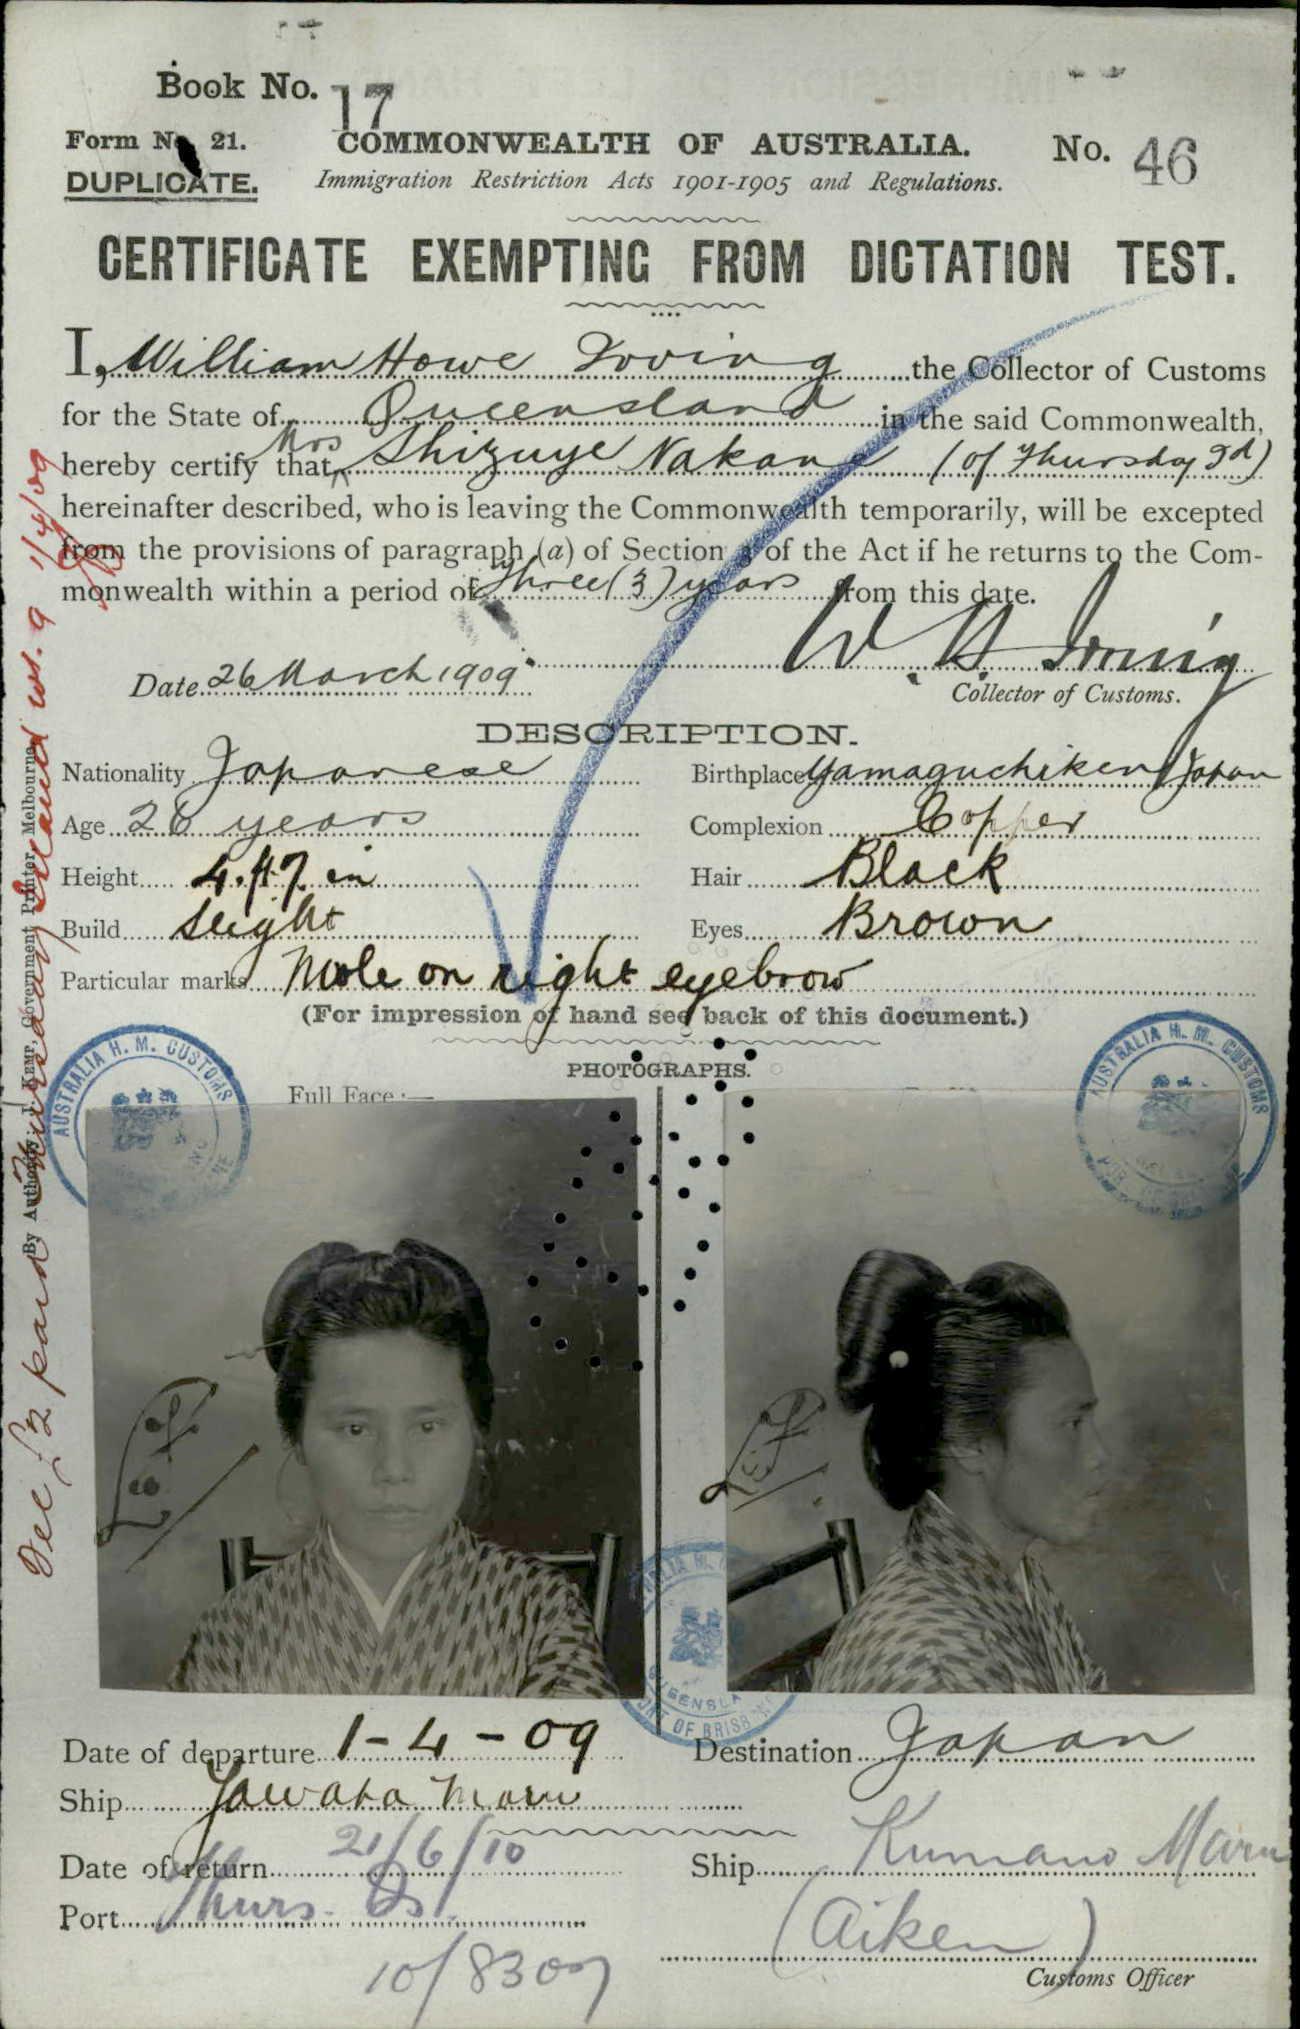 Book No. 17
Form No. 21. COMMONWEALTH OF AUSTRALIA. No. 46
DUPLICATE. Immigration Restriction Acts 1901-1905 and Regulations.
CERTIFICATE EXEMPTING FROM DICTATION TEST.
I, William Howe Irving the Collector of Customs
for the State of Queensland in the said Commonwealth,
hereby certify that Mrs Shizuye Nakane (of Thursday Id)
hereinafter described, who is leaving the Commonwealth temporarily, will be excepted
from the provisions of paragraph (a) of Section 3 of the Act if he returns to the Com-
monwealth within a period of three (3) years from this date.
W. H. Irving
Date 26 March 1909 Collector of Customs.
DESCRIPTION.
Nationality Japanese Birthplace Yamaguchiken Japan
Age 26 years Complexion Copper
Height 4.ft 7. in Hair Black
Build Slight Eyes Brown
Particular marks Mole on right eyebrow
(For impression of hand see back of this document.)
PHOTOGRAPHS.
Full Face :—
AUSTRALIA H. M. CUSTOMS
AUSTRALIA H. M. CUSTOMS
QUEENSLA
PORT OF BRISBANE
Date of departure 1-4-09 Destination Japan
Ship Yawata Maru
Date of return 21/6/10 Ship Kumano Maru
Port Thurs. Isl. (Aiken)
10/8307 Customs Officer
By Authority: J. KEMP, Government Printer, Melbourne.
Fee £2 paid Thursday Island 1/4/09